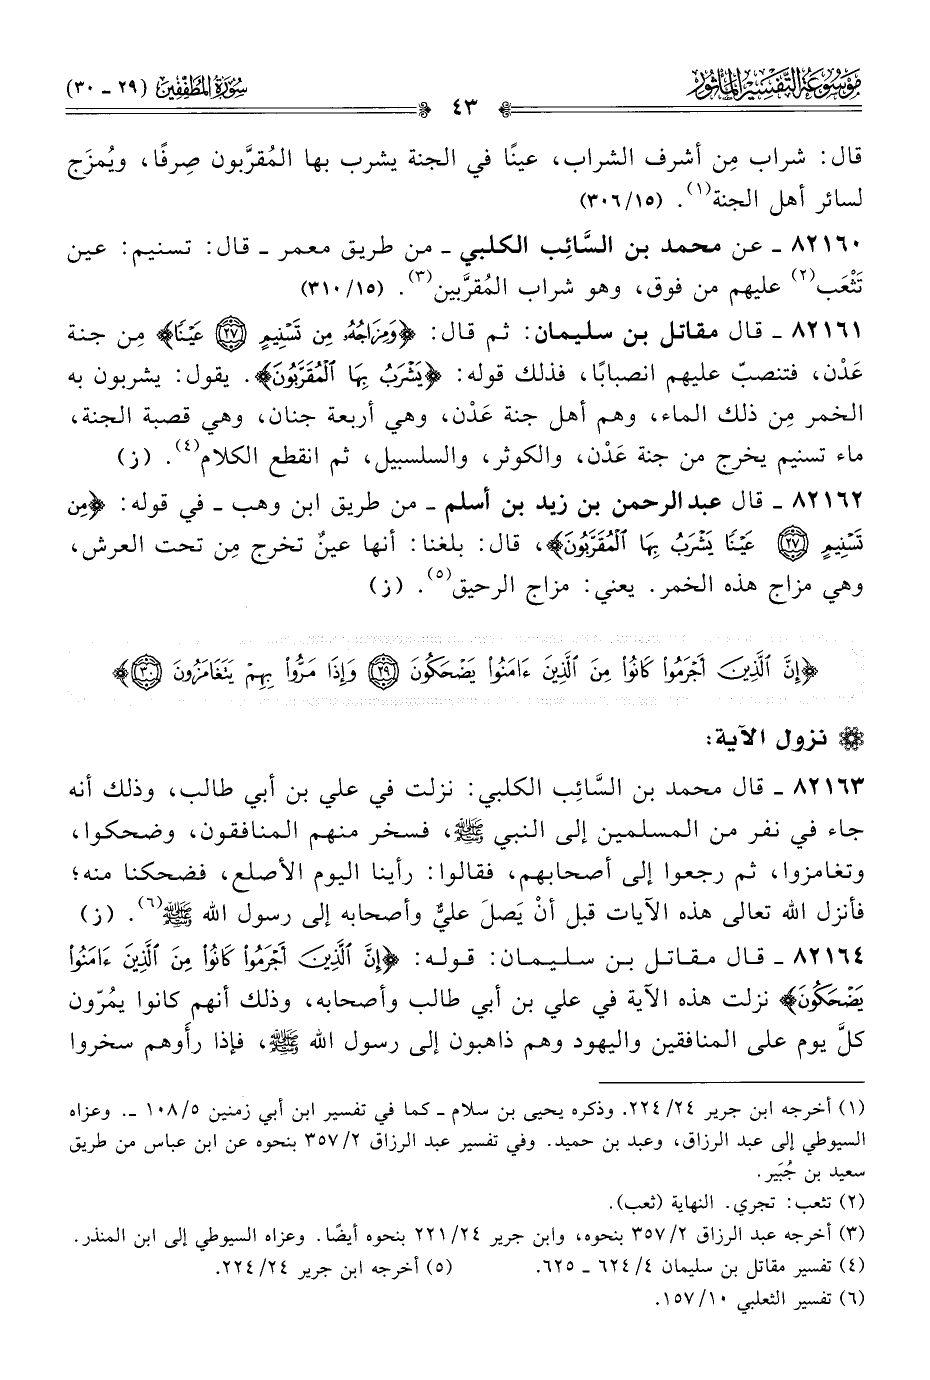 موسوعة التفسير المأثور
٤٣
سورة المطففين (٢٩ - ٣٠)
قال: شراب مِن أشرف الشراب، عينًا في الجنة يشرب بها المُقرَّبون صِرفًا، ويُمزَج
لسائر أهل الجنة(١). (٣٠٦/١٥)
٨٢١٦٠ ـ عن محمد بن السَّائِب الكلبي ـ من طريق معمر ـ قال: تسنيم: عين
تَثْعَب(٢) عليهم من فوق، وهو شراب المُقرَّبين(٣). (٣١٠/١٥)
٨٢١٦١ ـ قال مقاتل بن سليمان: ثم قال: ﴿وَمِزَاجُهُۥ مِن تَسْنِيمٍ ٢٧ عَيْنًا﴾ مِن جنة
عَدْن، فتنصبّ عليهم انصبابًا، فذلك قوله: ﴿يَشْرَبُ بِهَا ٱلْمُقَرَّبُونَ﴾. يقول: يشربون به
الخمر مِن ذلك الماء، وهم أهل جنة عَدْن، وهي أربعة جنان، وهي قصبة الجنة،
ماء تسنيم يخرج من جنة عَدْن، والكوثر، والسلسبيل، ثم انقطع الكلام(٤). (ز)
٨٢١٦٢ ـ قال عبد الرحمن بن زيد بن أسلم ـ من طريق ابن وهب ـ في قوله: ﴿مِن
تَسْنِيمٍ ٢٧ عَيْنًا يَشْرَبُ بِهَا ٱلْمُقَرَّبُونَ﴾، قال: بلغنا: أنها عينٌ تخرج مِن تحت العرش،
وهي مزاج هذه الخمر. يعني: مزاج الرحيق(٥). (ز)
﴿إِنَّ ٱلَّذِينَ أَجْرَمُوا۟ كَانُوا۟ مِنَ ٱلَّذِينَ ءَامَنُوا۟ يَضْحَكُونَ ٢٩ وَإِذَا مَرُّوا۟ بِهِمْ يَتَغَامَزُونَ ٣٠﴾
نزول الآية:
٨٢١٦٣ ـ قال محمد بن السَّائِب الكلبي: نزلت في علي بن أبي طالب، وذلك أنه
جاء في نفر من المسلمين إلى النبي ﷺ، فسخر منهم المنافقون، وضحكوا،
وتغامزوا، ثم رجعوا إلى أصحابهم، فقالوا: رأينا اليوم الأصلع، فضحكنا منه؛
فأنزل الله تعالى هذه الآيات قبل أنْ يَصلَ عليٌّ وأصحابه إلى رسول الله ﷺ(٦). (ز)
٨٢١٦٤ ـ قال مقاتل بن سليمان: قوله: ﴿إِنَّ ٱلَّذِينَ أَجْرَمُوا۟ كَانُوا۟ مِنَ ٱلَّذِينَ ءَامَنُوا۟
يَضْحَكُونَ﴾ نزلت هذه الآية في علي بن أبي طالب وأصحابه، وذلك أنهم كانوا يمُرّون
كلَّ يوم على المنافقين واليهود وهم ذاهبون إلى رسول الله ﷺ، فإذا رأَوهم سخروا
(١) أخرجه ابن جرير ٢٢٤/٢٤. وذكره يحيى بن سلام ـ كما في تفسير ابن أبي زمنين ١٠٨/٥ ـ. وعزاه
السيوطي إلى عبد الرزاق، وعبد بن حميد. وفي تفسير عبد الرزاق ٣٥٧/٢ بنحوه عن ابن عباس من طريق
سعيد بن جُبَير.
(٢) تثعب: تجري. النهاية (ثعب).
(٣) أخرجه عبد الرزاق ٣٥٧/٢ بنحوه، وابن جرير ٢٢١/٢٤ بنحوه أيضًا. وعزاه السيوطي إلى ابن المنذر.
(٤) تفسير مقاتل بن سليمان ٦٢٤/٤ ـ ٦٢٥. (٥) أخرجه ابن جرير ٢٢٤/٢٤.
(٦) تفسير الثعلبي ١٥٧/١٠.